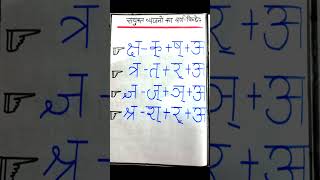 संयुक्त व्यंजनों का वर्ण-विच्छेद
क्ष-क्+ष्+अ
त्र-त्+र्+अ
ज्ञ-ज्+ञ्+अ
श्र-श्+र्+अ